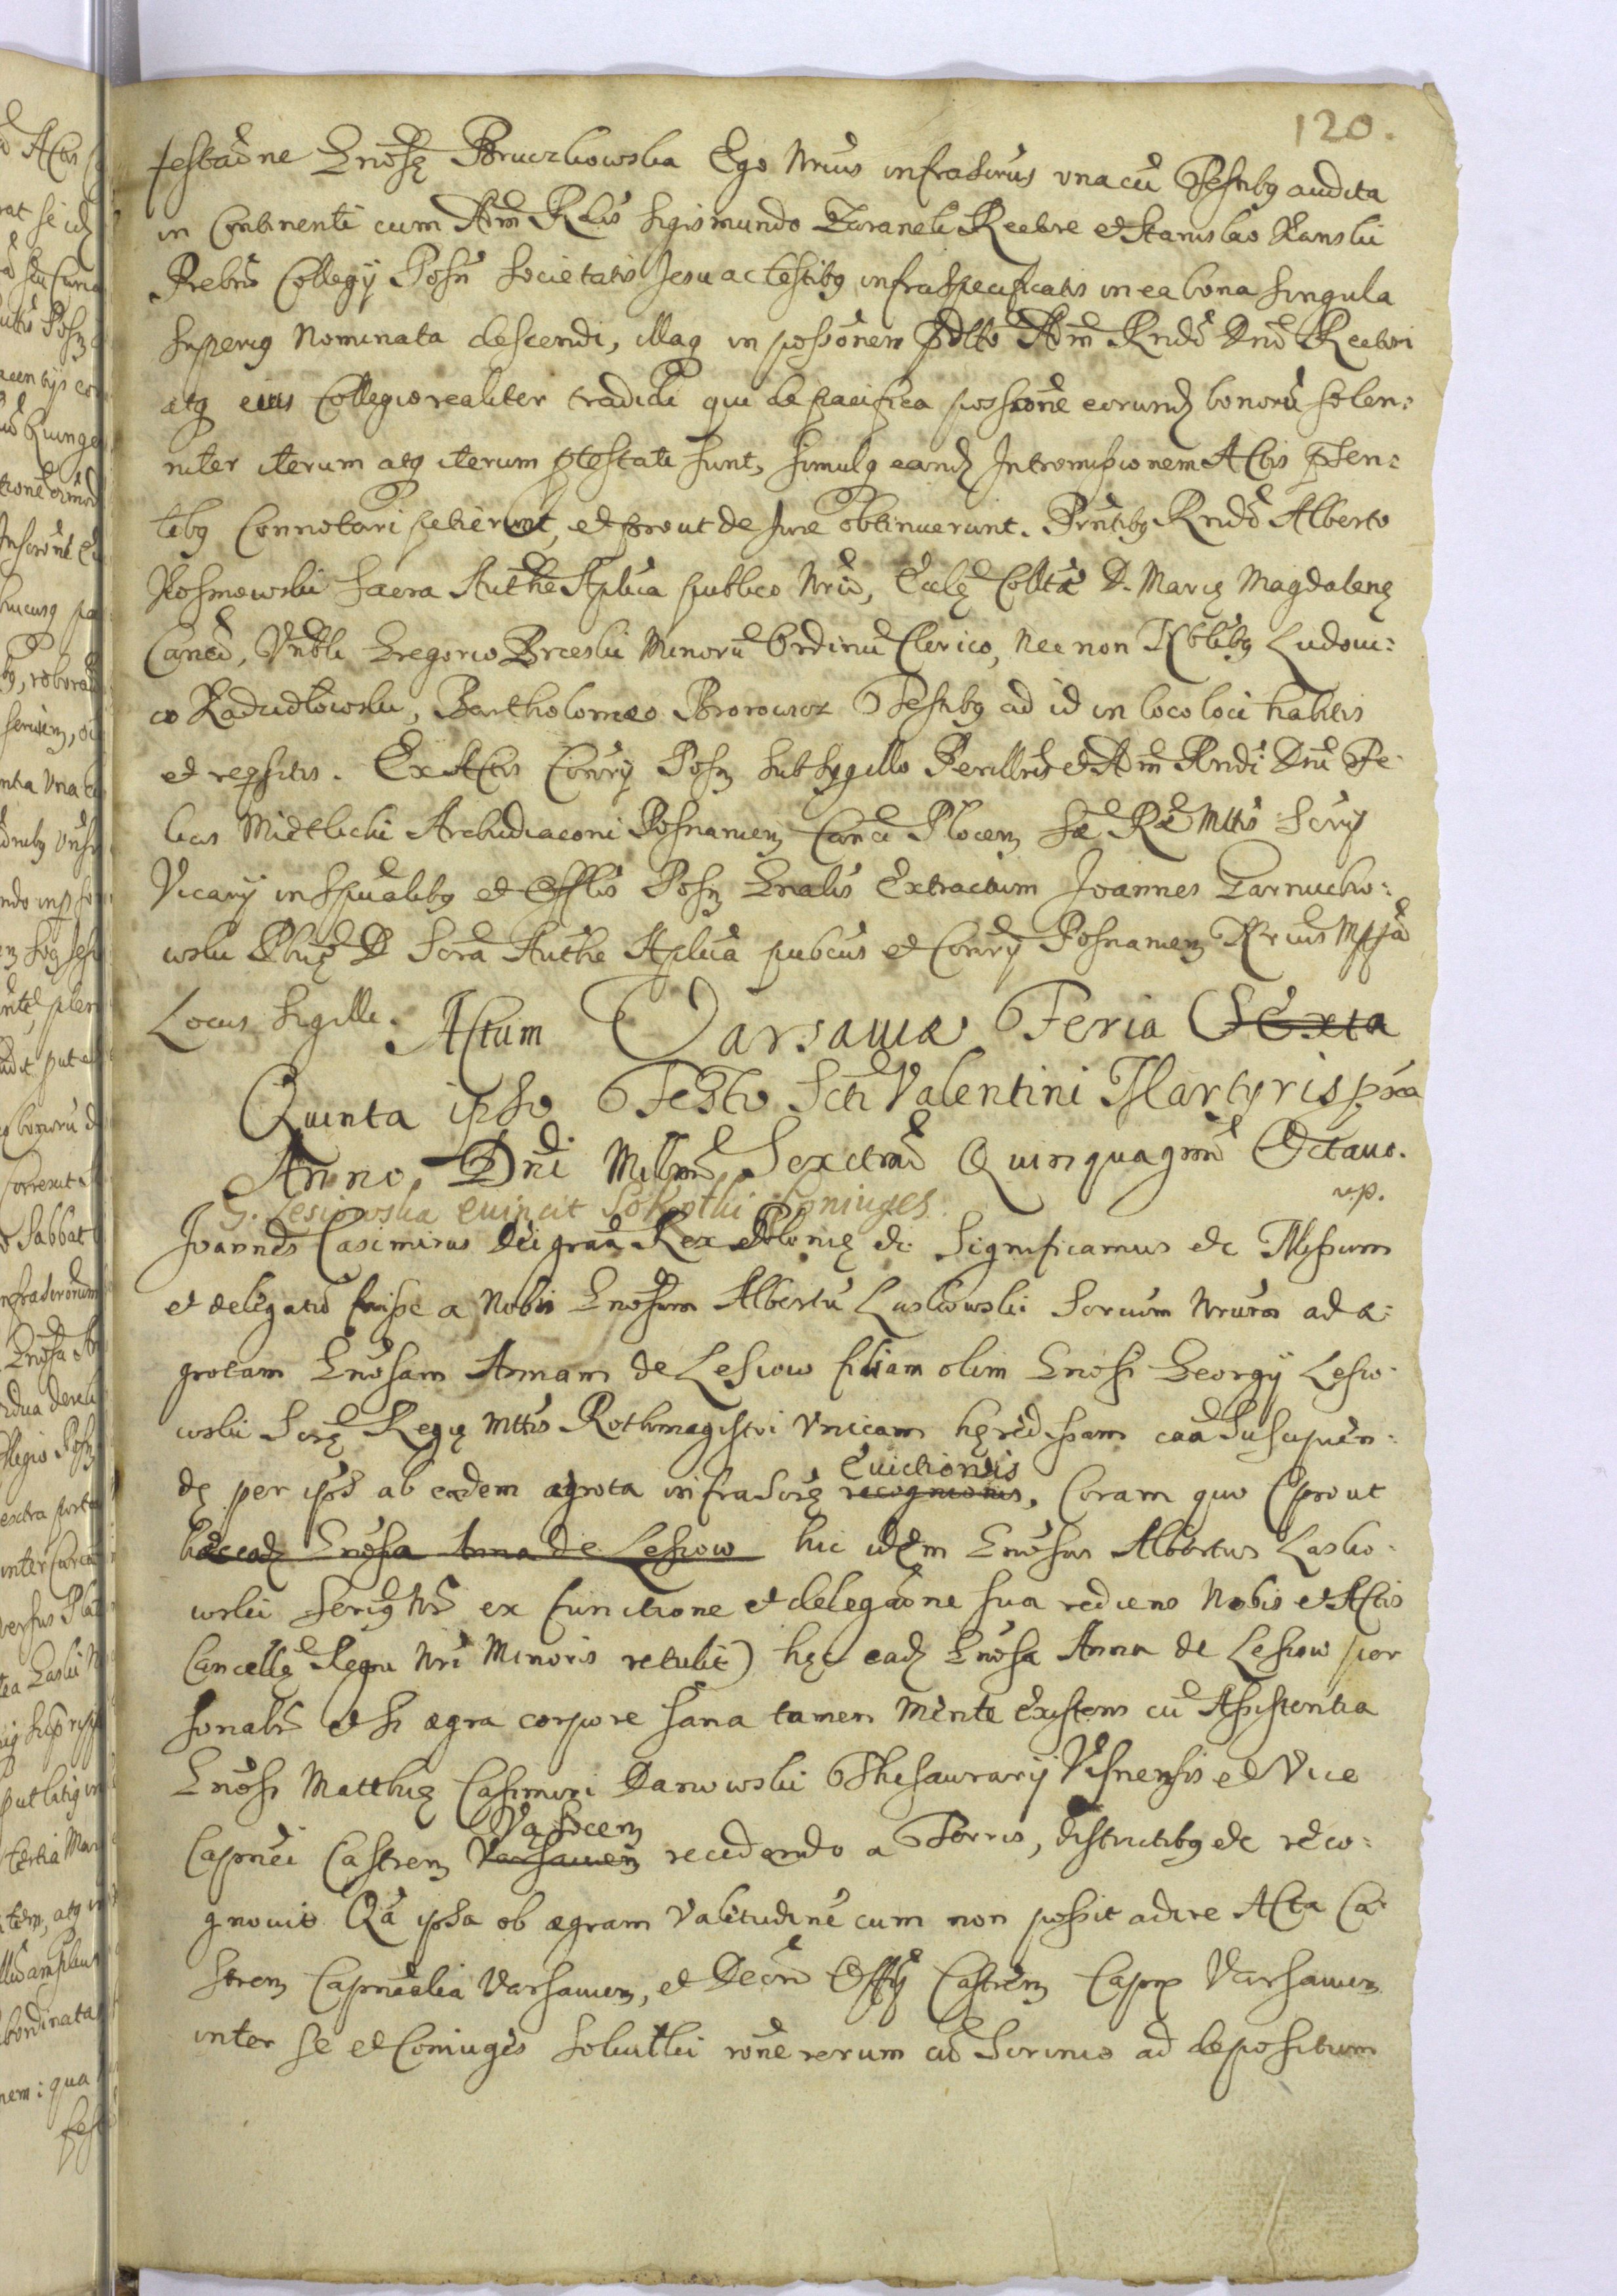 120.
festaōne Gnōsę Bruczkowska Ego Nrius infrascrus vnacū Testibq audita
in Continenti cum Adm Rdis Sigismundo Taraneli Rectore et Stanislao Kanski
Prebrō Collegij Posn Societatis Jesu ac testibq infraspecificatis in ea bona singula
superiq Nominata descendi, illaq in possōnem pdtto Adm Rndō Dnō Rectori
atq eius Collegio realiter tradidi qui de pacifica possōne eorundq bonorū solen:
niter iterum atq iterum ptestati sunt, simulq eandq Intromissionem Actis psen:
tibq Connotari petierunt, et prout de Jure obtinuerunt. Prntibq Rndō Alberto
Rosmowski Sacra Authē Aplica publico Nriō, Eccle Colltæ D. Marię Magdalenę
Canco, Vnbli Gregorio Brceski Minorū Ordinū Clerico, nec non Nblibq Ludoui:
co Radudlowski, Bartholomæo Borowicz Testibq ad id in loco loci habitis
et reqsitis. Ex Actis Consrij Posn sub Sygillo Perillris et Adm Rndi Dni Fe:
licis Miethlicki Archidiaconi Posnanien Canci Plocen Sæ Ræ Mttis Scrij
Vicarij in Spiualibq et Offlis Posn Gnalis Extractum Joannes Tarnucho:
wski Phię D Scra Authe Aplica pubcus et Consrij Posnanien Nrius Mppa
Locus Sigilli. Actum Varsauiæ Feria Sexta
Quinta ipso Festo Scti Valentini Martyris pria
Anno Dni Millmo Sexctmō Quinquagmō Octauo.
G. Lesiowska euincit Sokolthi Coniuges. vp.
Joannes Casimirus Dei gratia Rex Polonię etc Significamus etc Missum
et delegatū fuisse a Nobis Gnōsum Albertū Laskowski Scruum Nrum ad æ:
grotam Gnōsam Annam de Lesiow filiam olim Gnōsi Georgij Lesio:
wski Scrę Regię Mttis Rothmagistri vnicam hęredissam caā Suscipien:
dę per ipsū ab eadem ægrota infrascrę Euictionis recognionis, Coram quo (prout
hæc eadq Gnōsa Anna de Lesiow hic idem Gnōsus Albertus Lasko:
wski Scriq Nr ex functione et delegaōne sua rediens Nobis et Actis
Cancellę Regni Nri Minoris retulit) hęc eadq Gnōsa Anna de Lesiow per
sonalr etsi ægra corpore sana tamen Mente Existens cū Assistentia
Gnōsi Matthię Casimiri Danowski Thesaurarij Visnensis et Vice
Capnei Castren Vąsocen Varsauien recedendo a Terris, districtibq etc reco:
gnouit Qa ipsa ob ægram Valitudinē cum non possit adire Acta Ca:
stren Capnealia Varsauien, et Decrm Offij Castren Capnp Varsauien
inter se et Coniuges Sokuthi rōne rerum cū Scrinio ad depositum